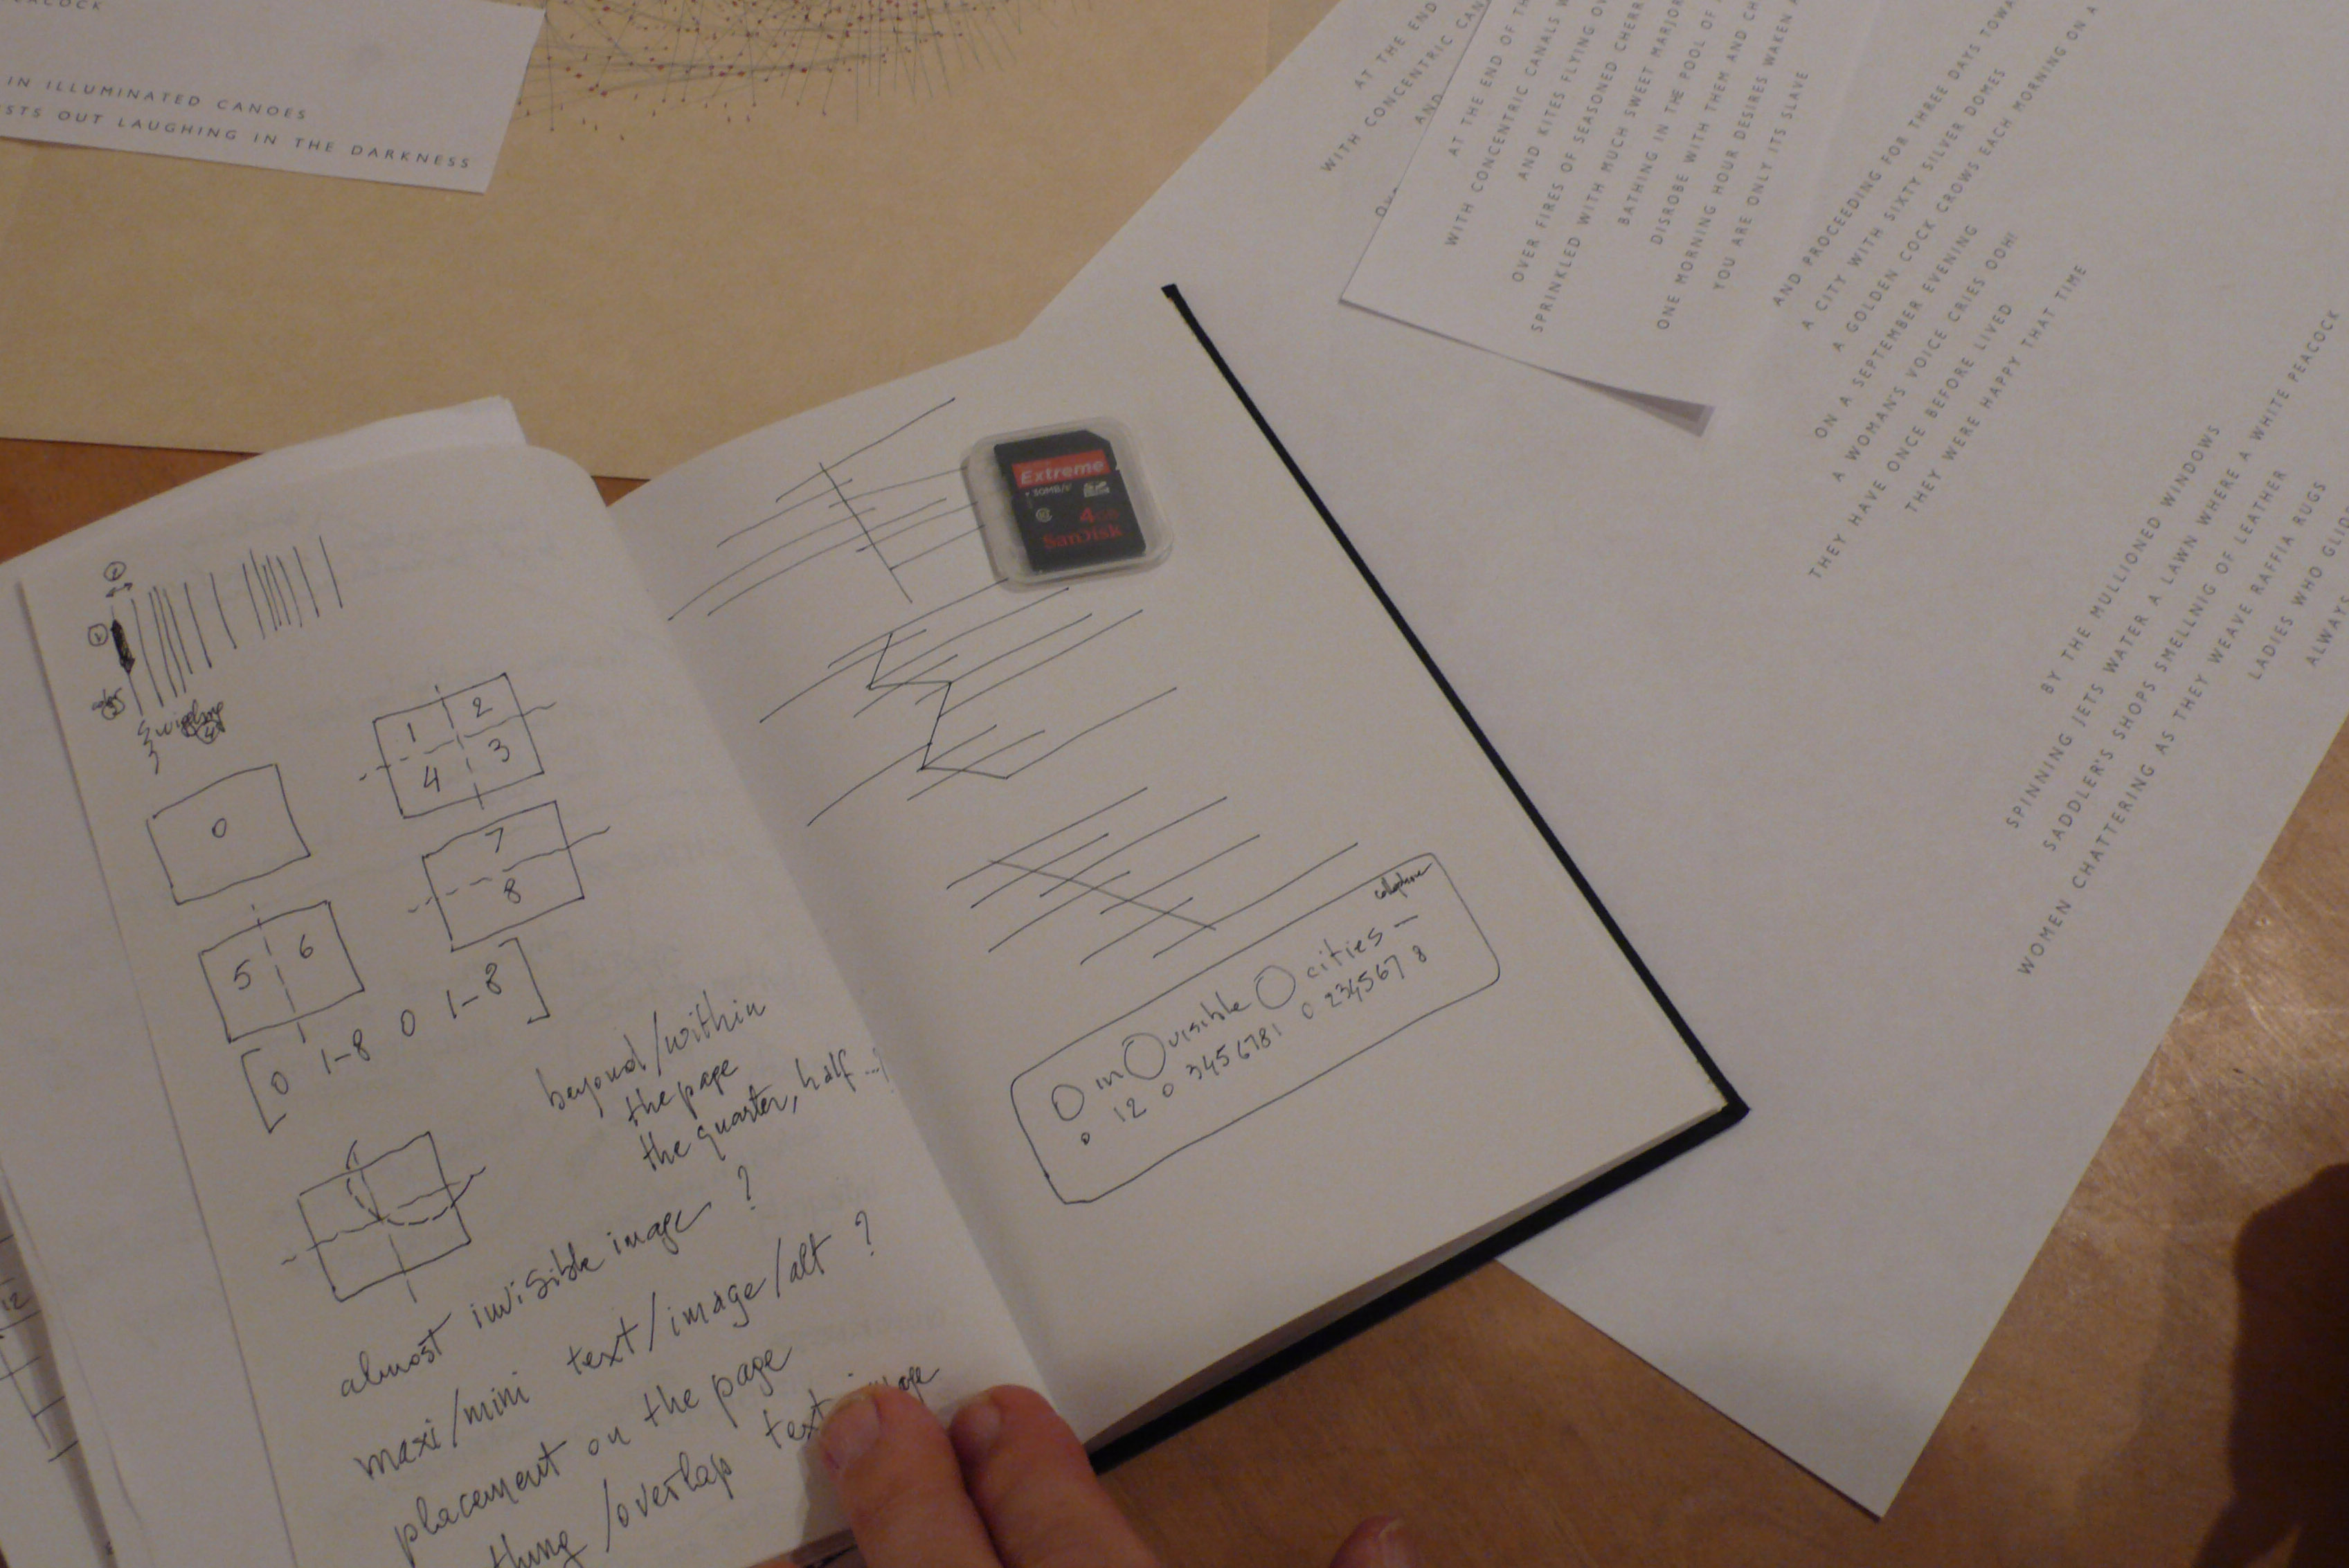 EACOCK
IN ILLUMINATED CANOES
STS OUT LAUGHING IN THE DARKNESS
AT THE END
WITH CONCENTRIC CAN
AND
AT THE END OF TH
WITH CONCENTRIC CANALS
AND KITES FLYING OV
OVER FIRES OF SEASONED CHERR
SPRINKLED WITH MUCH SWEET MARJOR
BATHING IN THE POOL OF
DISROBE WITH THEM AND CH
ONE MORNING HOUR DESIRES WAKEN
YOU ARE ONLY ITS SLAVE
AND PROCEEDING FOR THREE DAYS TOWA
A CITY WITH SIXTY SILVER DOMES
A GOLDEN COCK CROWS EACH MORNING ON A
ON A SEPTEMBER EVENING
A WOMAN'S VOICE CRIES OOH!
THEY HAVE ONCE BEFORE LIVED
THEY WERE HAPPY THAT TIME
BY THE MULLIONED WINDOWS
SPINNING JETS WATER A LAWN WHERE A WHITE PEACOCK
SADDLER'S SHOPS SMELLNIG OF LEATHER
WOMEN CHATTERING AS THEY WEAVE RAFFIA RUGS
LADIES WHO GLID
ALWAYS
Extreme
30MB/s
4GB
SanDisk
1 2
4 3
0
7
8
5 6
[0 1-8 0 1-8]
beyond/within
the page
the quarter, half ...
almost invisible image ?
maxi/mini text/image/alt ?
placement on the page
thing/overlap text
in visible cities —
0 12 0 3456781 0 234567 8
12